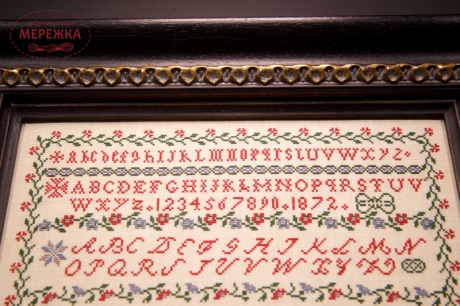 МЕРЕЖКА
ABCDEFGHIJKLMNOPQRSTUVWXYZ
ABCDEFGHIJKLMNOPQRSTUV
WXYZ.1234567890.1872.
ABCDEFGHIJKLMN
OPQRSTUVWXYZ